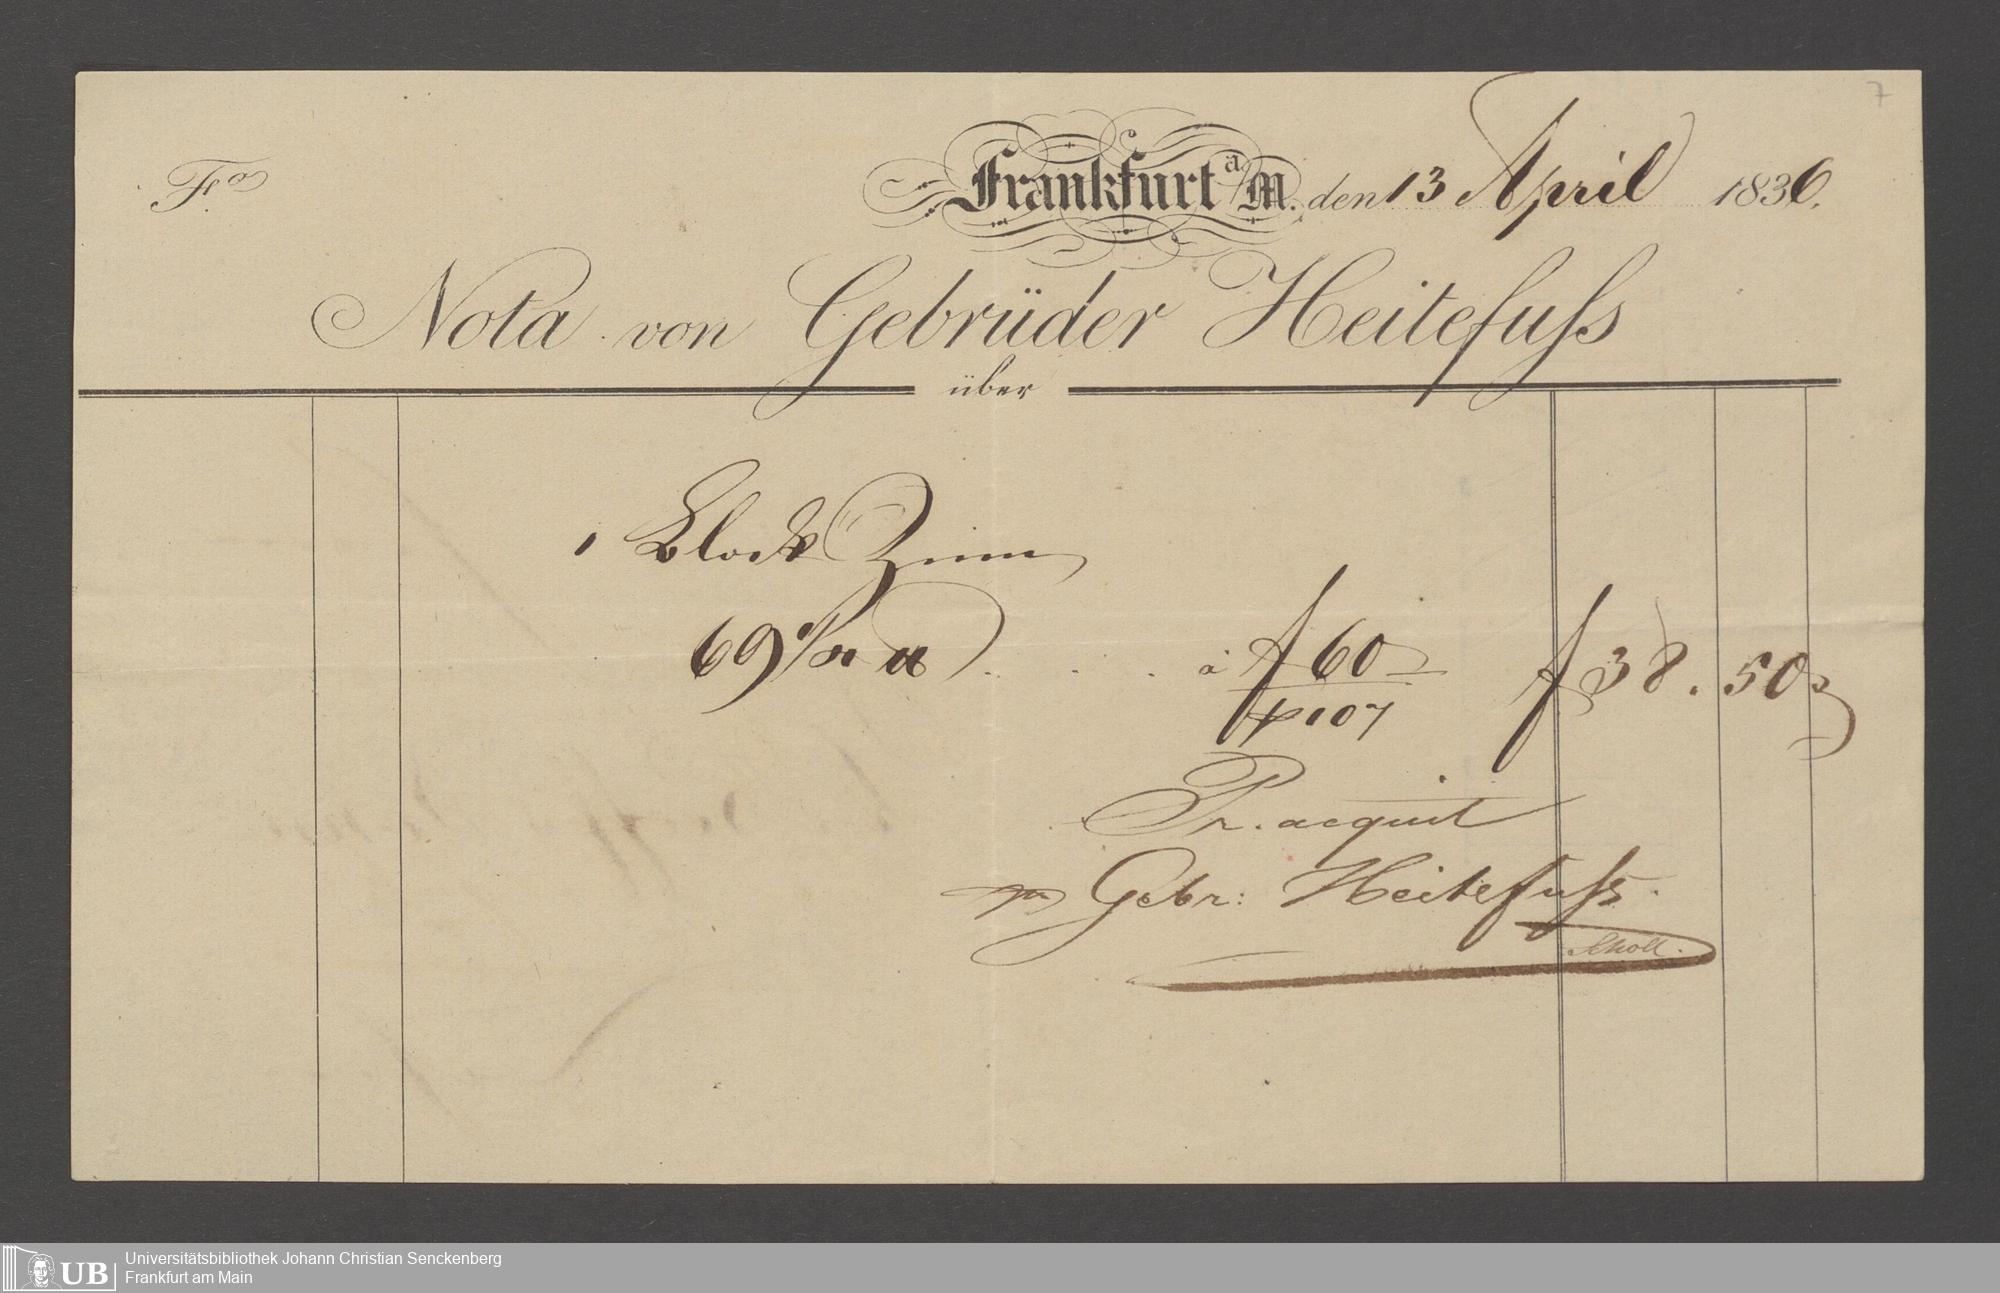 7
Fº
Frankfurt a/M. den 13 April 1836.
Nota von Gebrüder Heitefuſs
über
1 Block Zinn
69 ℔ à f 60 f 38. 50
107
Pr. acquit
ppa Gebr: Heitefuſs.
Scholl.
UB Universitätsbibliothek Johann Christian Senckenberg
Frankfurt am Main